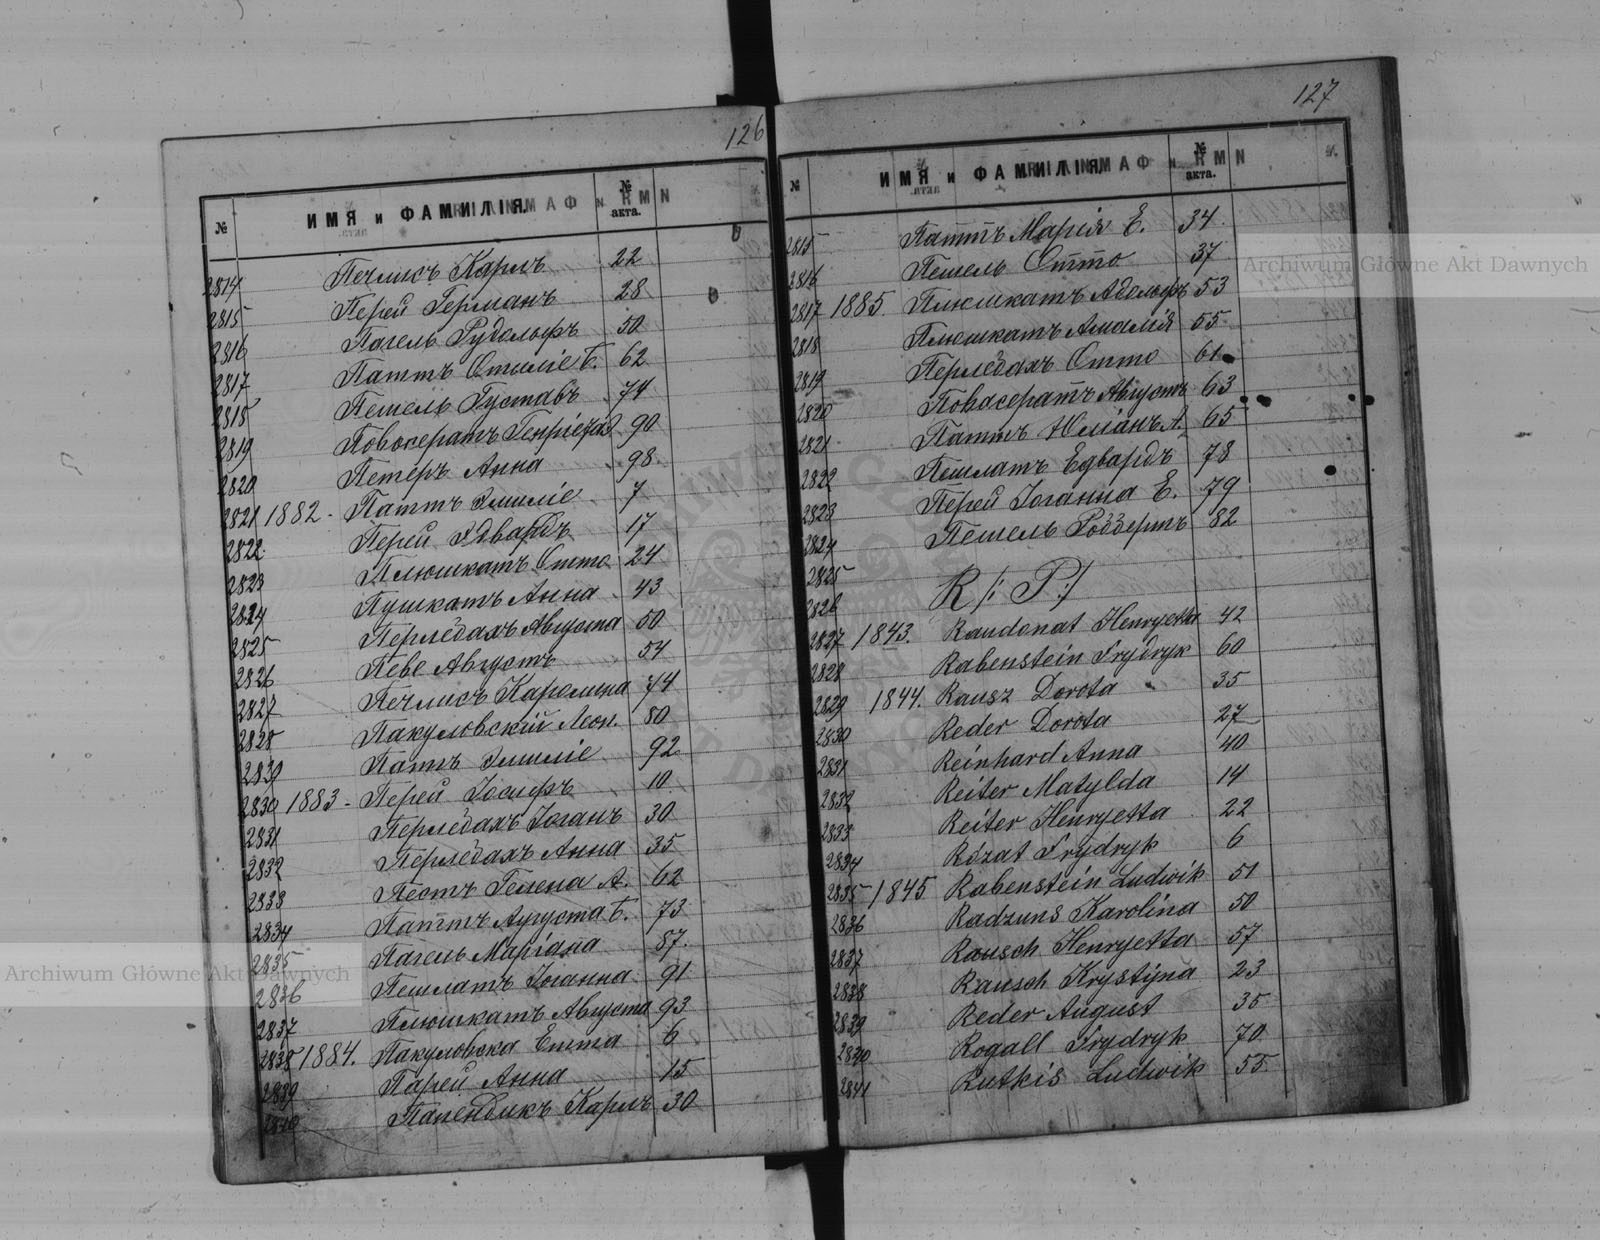 126
№ ИМЯ и ФАМИЛІЯ. № акта.
2814 Печлисъ Карлъ 22
2815 Перей Германъ 28
2816 Пагель Рудольфъ 50
2817 Паттъ Отиліе Б. 62
2818 Пешель Густавъ 74
2819 Повосератъ Генріета 90
2820 Петеръ Анна 98
2821 1882 - Паттъ Эмиліе 7
2822 Перей Эдвардъ 17
2823 Плюшкатъ Отто 24
2824 Пушкатъ Анна 43
2825 Перлебахъ Августа 50
2826 Певе Августъ 54
2827 Печлисъ Каролина 74
2828 Пакуловскій Леон. 80
2829 Паттъ Эмиліе 92
2830 1883 - Перей Іосифъ 10
2831 Перлебахъ Іоганъ 30
2832 Перлебахъ Анна 35
2833 Пеотъ Гелена А. 62
2834 Паттъ Аугуста Б. 73
2835 Пагель Маріана 87.
2836 Пешлатъ Іоганна 91
2837 Плюшкатъ Августа 93
2838 1884. Пакуловска Емма 6
2839 Парей Анна 15
2840 Папендикъ Карлъ 30
127
№ ИМЯ и ФАМИЛІЯ. № акта.
2815 Паттъ Марія Е. 34
2816 Пешель Отто 37
2817 1885. Плюшкатъ Адольфъ 53
2818 Плюшкатъ Амалія 55
2819 Перлебахъ Отто 61
2820 Повосератъ Августъ 63
2821 Паттъ Юліанъ А. 65
2822 Пешлатъ Едвардъ 78
2823 Перей Іоганна Е. 79
2824 Пешель Робертъ 82
2825
2826 R /: P :/
2827 1843. Raudonat Henryetta 42
2828 Rabenstein Frydryk 60
2829 1844. Rausz Dorota 35
2830 Reder Dorota 27
2831 Reinhard Anna 40
2832 Reiter Matylda 14
2833 Reiter Henryetta 22
2834 Rózat Frydryk 6
2835 1845 Rabenstein Ludwik 51
2836 Radzuns Karolina 50
2837 Rausch Henryetta 57
2838 Rausch Krystyna 23
2839 Reder August 35
2840 Rogall Frydryk 70
2841 Rutkis Ludwik 55
Archiwum Główne Akt Dawnych
Archiwum Główne Akt Dawnych